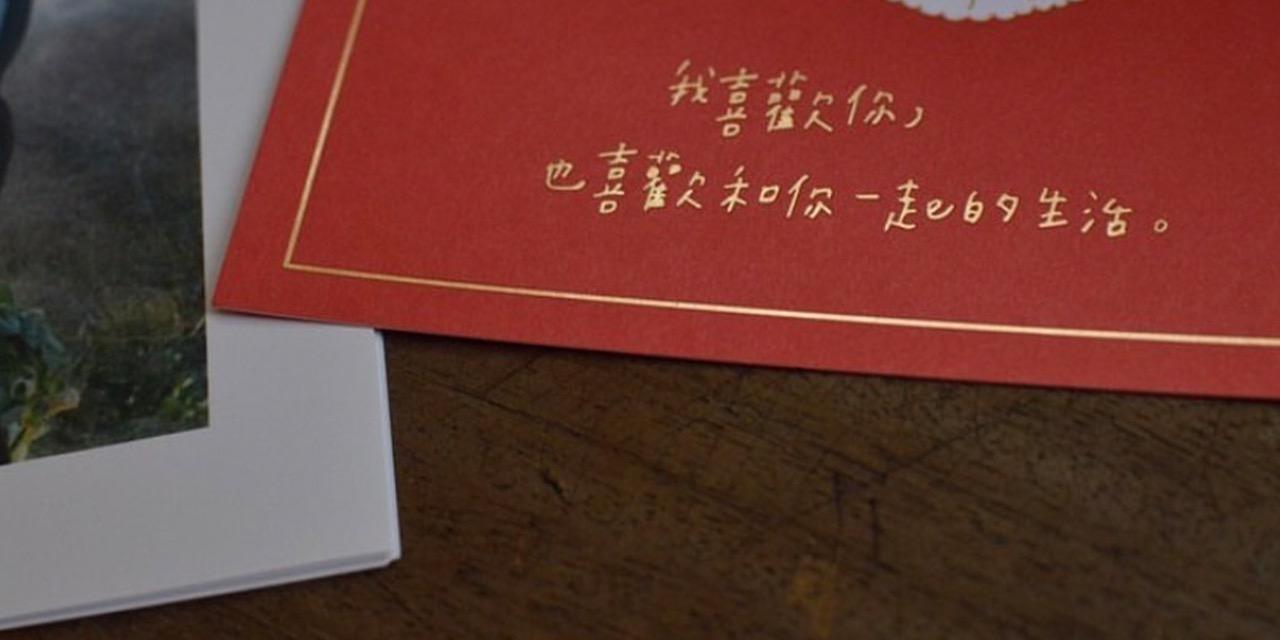 我喜歡你，
也喜歡和你一起的生活。